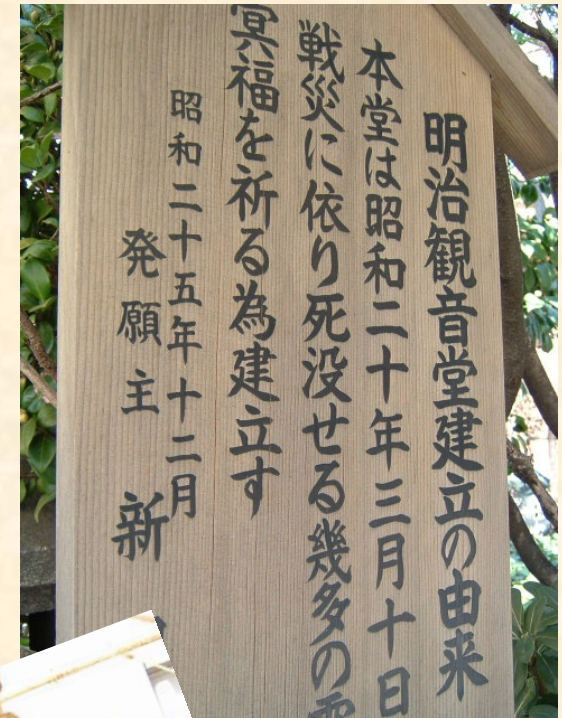 明治観音堂建立の由来
本堂は昭和二十年三月十日
戦災に依り死没せる幾多の
冥福を祈る為建立す
昭和二十五年十二月
発願主 新